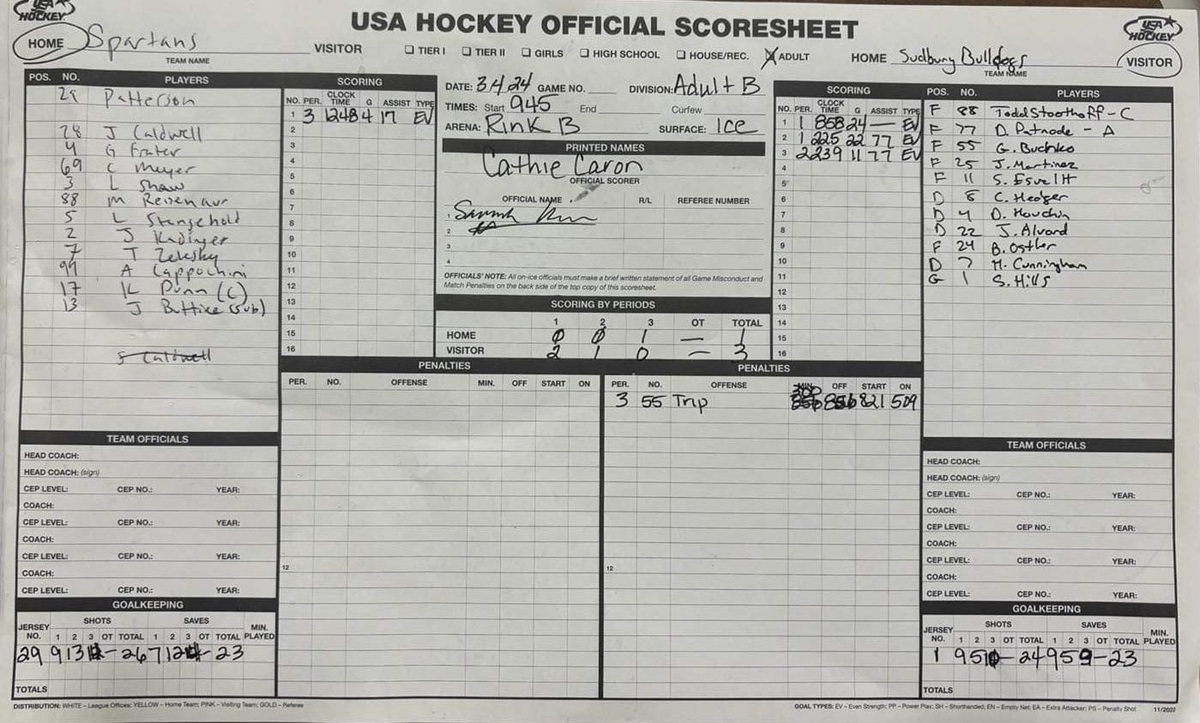 USA HOCKEY
USA HOCKEY OFFICIAL SCORESHEET
USA HOCKEY
HOME Spartans VISITOR
TEAM NAME
☐ TIER I ☐ TIER II ☐ GIRLS ☐ HIGH SCHOOL ☐ HOUSE/REC. ☒ ADULT
HOME Sudbury Bulldogs VISITOR
TEAM NAME
POS. NO. PLAYERS
29 Patterson
28 J Caldwell
4 G Frater
69 C Meyer
3 L Shaw
88 M
5 L Stengehold
2 J Kadinger
7 T Zelesky
99 A Cappochini
17 K Dunn (C)
13 J Buttice (sub)
Caldwell
SCORING
NO. PER. CLOCK TIME G ASSIST TYPE
1 3 1248 4 17 EV
2
3
4
5
6
7
8
9
10
11
12
13
14
15
16
DATE: 3/4/24 GAME NO. DIVISION: Adult B
TIMES: Start 945 End Curfew
ARENA: Rink B SURFACE: Ice
PRINTED NAMES
Cathie Caron
OFFICIAL SCORER
OFFICIAL NAME R/L REFEREE NUMBER
1
2
3
4
OFFICIALS' NOTE: All on-ice officials must make a brief written statement of all Game Misconduct and
Match Penalties on the back side of the top copy of this scoresheet.
SCORING BY PERIODS
1 2 3 OT TOTAL
HOME 0 0 1 — 1
VISITOR 2 1 0 — 3
SCORING
NO. PER. CLOCK TIME G ASSIST TYPE
1 1 858 24 — EV
2 1 225 22 77 EV
3 2 239 11 77 EV
4
5
6
7
8
9
10
11
12
13
14
15
16
POS. NO. PLAYERS
F 88 Todd Stoorhoff - C
F 77 D. Patnode - A
F 55 G. Buchko
F 25 J. Martinez
F 11 S. Esvelt
D 8 C. Hedger
D 4 D. Houchin
D 22 J. Alvord
F 24 B. Ostler
D 7 M. Cunningham
G 1 S. Hills
PENALTIES
PER. NO. OFFENSE MIN. OFF START ON
12
PENALTIES
PER. NO. OFFENSE MIN. OFF START ON
3 55 Trip 300 856 821 509
12
TEAM OFFICIALS
HEAD COACH:
HEAD COACH: (sign)
CEP LEVEL: CEP NO.: YEAR:
COACH:
CEP LEVEL: CEP NO.: YEAR:
COACH:
CEP LEVEL: CEP NO.: YEAR:
COACH:
CEP LEVEL: CEP NO.: YEAR:
GOALKEEPING
JERSEY NO. SHOTS 1 2 3 OT TOTAL SAVES 1 2 3 OT TOTAL MIN. PLAYED
29 9 13 4 - 26 7 12 4 - 23
TOTALS
TEAM OFFICIALS
HEAD COACH:
HEAD COACH: (sign)
CEP LEVEL: CEP NO.: YEAR:
COACH:
CEP LEVEL: CEP NO.: YEAR:
COACH:
CEP LEVEL: CEP NO.: YEAR:
COACH:
CEP LEVEL: CEP NO.: YEAR:
GOALKEEPING
JERSEY NO. SHOTS 1 2 3 OT TOTAL SAVES 1 2 3 OT TOTAL MIN. PLAYED
1 9 5 10 - 24 9 5 9 - 23
TOTALS
DISTRIBUTION: WHITE – League Offices; YELLOW – Home Team; PINK – Visiting Team; GOLD – Referee
GOAL TYPES: EV – Even Strength; PP – Power Play; SH – Shorthanded, EN – Empty Net; EA – Extra Attacker; PS – Penalty Shot 11/2022